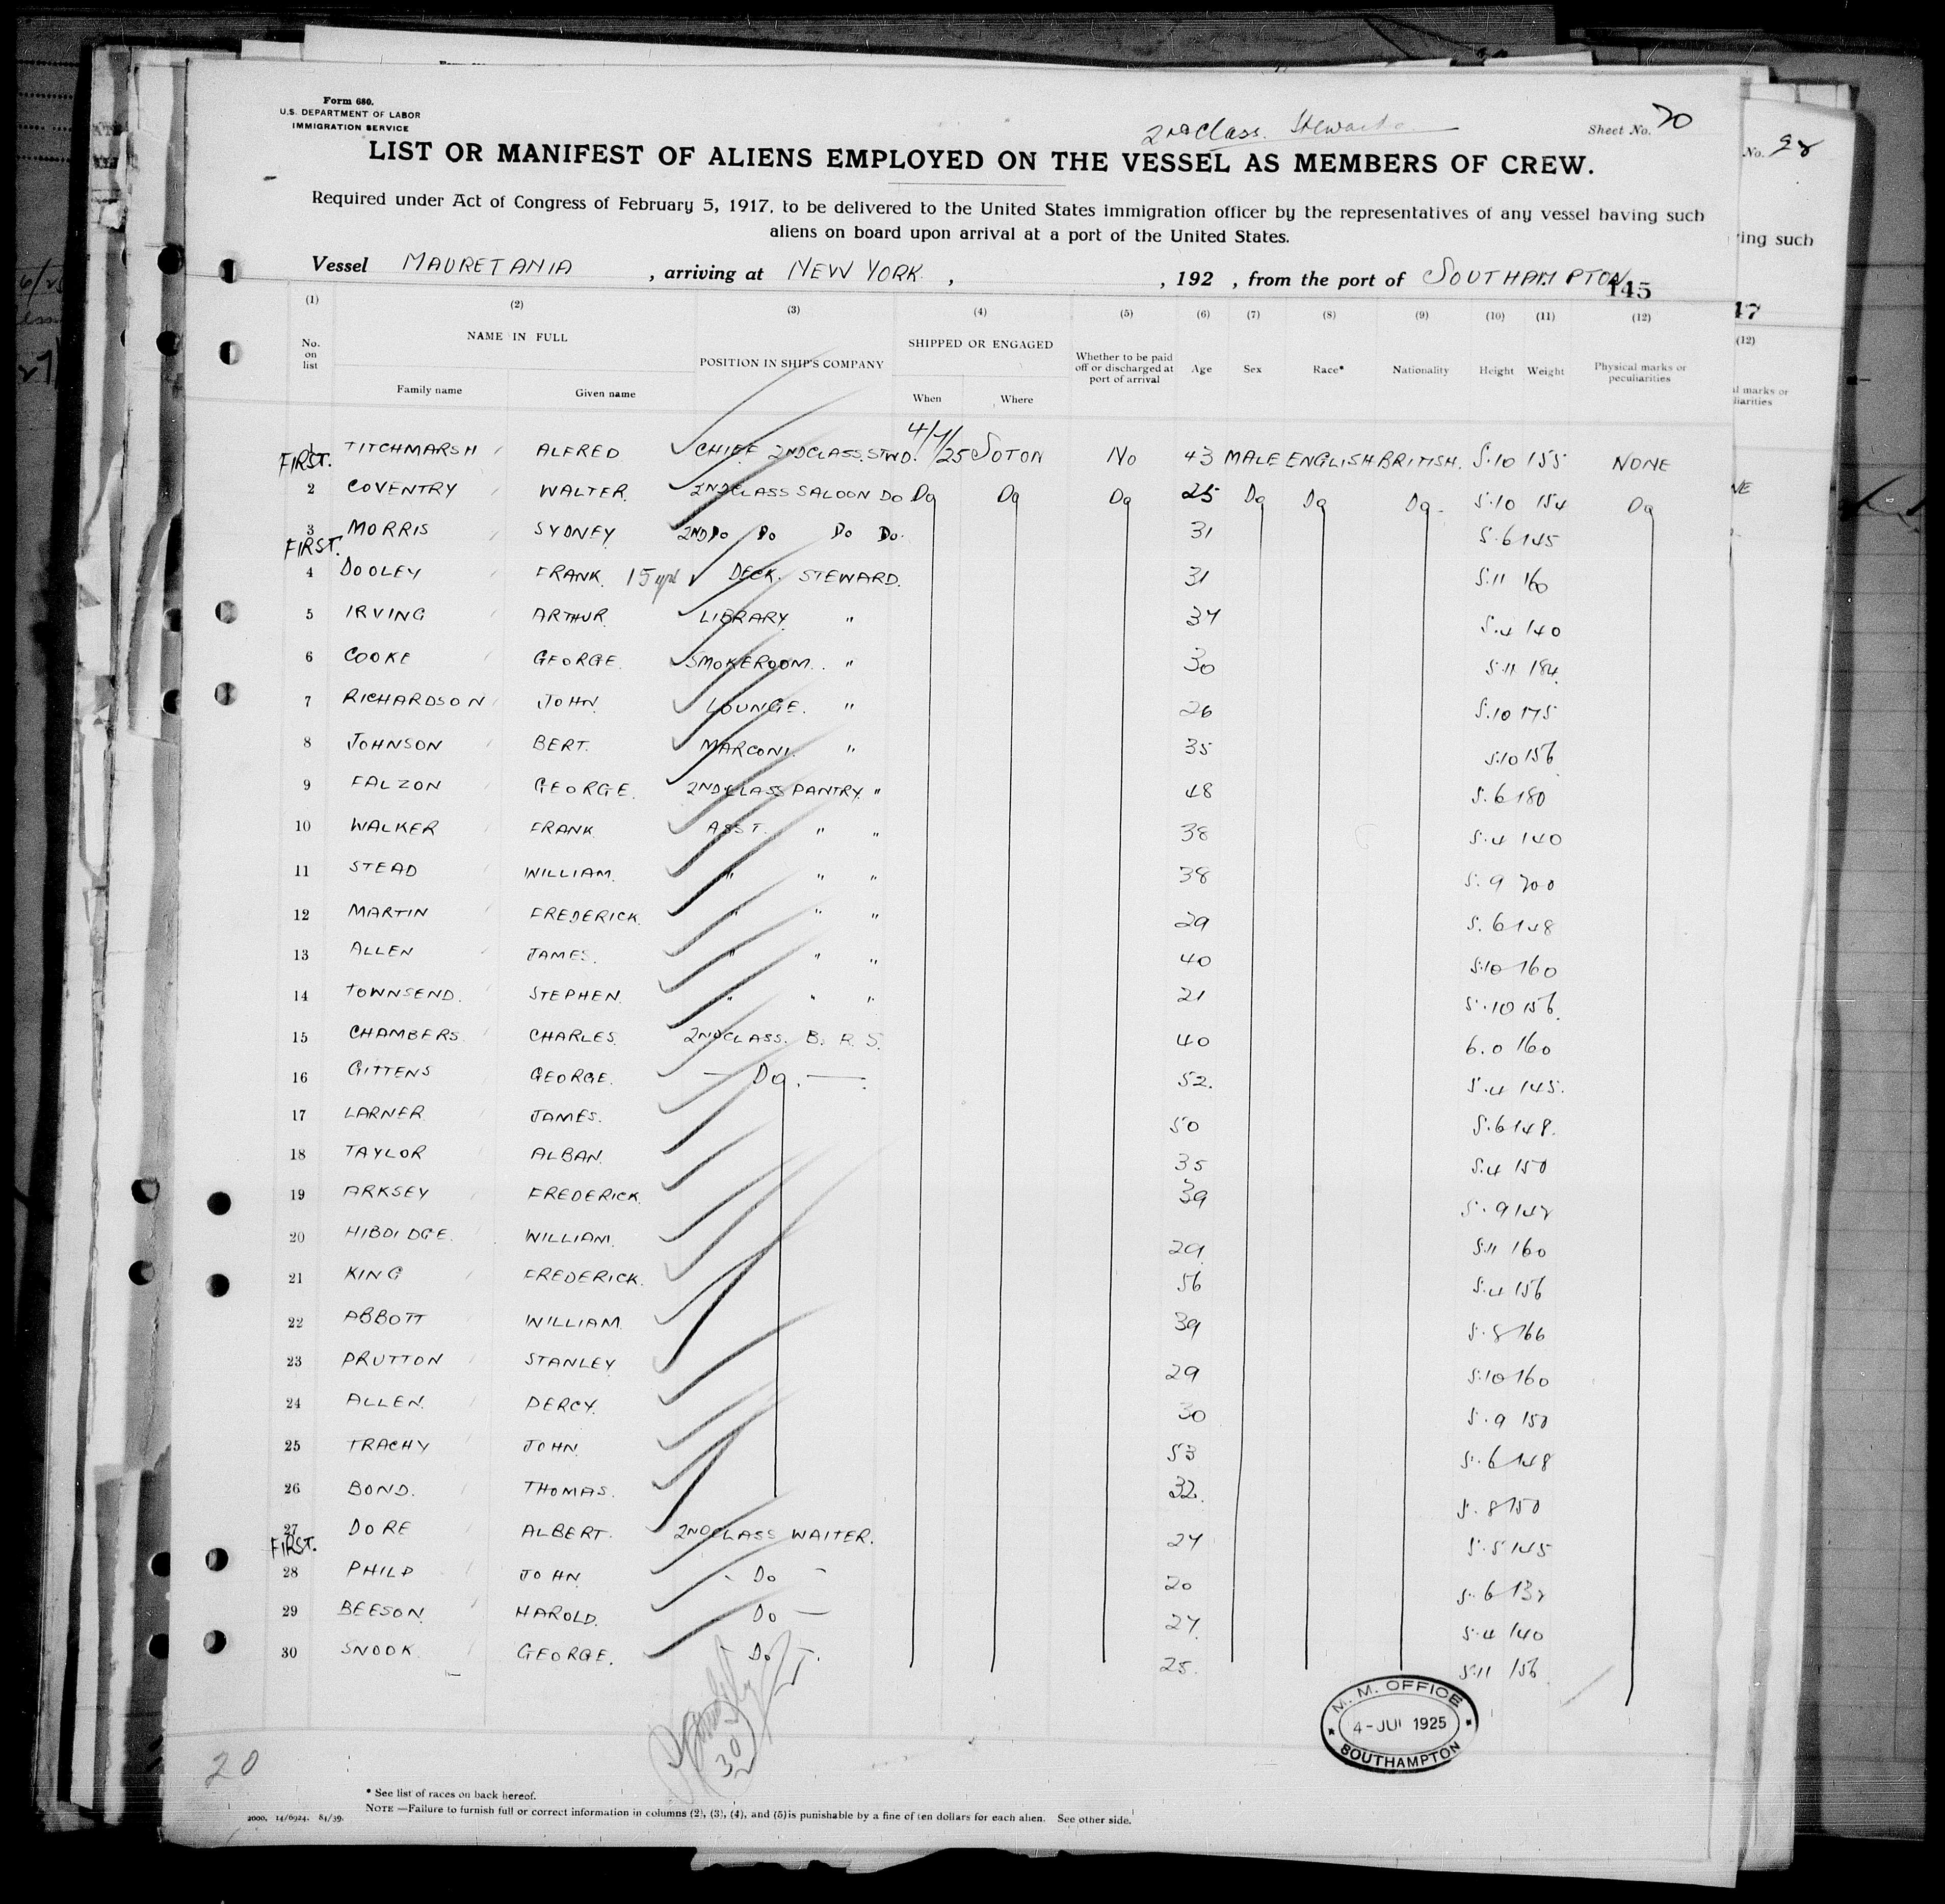 Form 680.
U.S. DEPARTMENT OF LABOR
IMMIGRATION SERVICE
2nd Class. Stewards
Sheet No. 20
No. 98
LIST OR MANIFEST OF ALIENS EMPLOYED ON THE VESSEL AS MEMBERS OF CREW.
Required under Act of Congress of February 5, 1917, to be delivered to the United States immigration officer by the representatives of any vessel having such
aliens on board upon arrival at a port of the United States.
ing such
Vessel MAURETANIA , arriving at NEW YORK , , 192 , from the port of SOUTHAMPTON
145
(1) (2) (3) (4) (5) (6) (7) (8) (9) (10) (11) (12)
No. on list NAME IN FULL POSITION IN SHIP'S COMPANY SHIPPED OR ENGAGED Whether to be paid off or discharged at port of arrival Age Sex Race* Nationality Height Weight Physical marks or peculiarities
Family name Given name When Where
1 FIRST. TITCHMARSH ALFRED CHIEF 2ND CLASS. STWD. 4/7/25 SOTON No 43 MALE ENGLISH BRITISH. 5.10 155 NONE
2 COVENTRY WALTER. 2ND CLASS SALOON DO Do Do Do 25 Do Do Do 5.10 154 Do
3 FIRST. MORRIS SYDNEY 2ND Do Do Do Do. 31 5.6 145
4 DOOLEY FRANK. DECK. STEWARD. 31 5.11 160
5 IRVING ARTHUR. LIBRARY. " 37 5.4 140
6 COOKE GEORGE. SMOKEROOM. " 30 5.11 184.
7 RICHARDSON JOHN. LOUNGE. " 26 5.10 175
8 JOHNSON BERT. MARCONI. " 35 5.10 156
9 FALZON GEORGE. 2ND CLASS PANTRY. " 48 5.6 180
10 WALKER FRANK ASST. " " 38 5.4 140
11 STEAD WILLIAM. " " " 38 5.9 200
12 MARTIN FREDERICK. " " " 29 5.6 148
13 ALLEN JAMES. " " " 40 5.10 160
14 TOWNSEND. STEPHEN. " " " 21 5.10 156.
15 CHAMBERS CHARLES. 2ND CLASS. B. R. S. 40 6.0 160
16 GITTENS GEORGE. — Do. — 52. 5.4 145.
17 LARNER JAMES. 50 5.6 148.
18 TAYLOR ALBAN. 35 5.4 150
19 ARKSEY FREDERICK. 39 5.9
20 HIBDIDGE. WILLIAM. 29. 5.11 160
21 KING FREDERICK. 56 5.4 156
22 ABBOTT WILLIAM. 39 5.8 166
23 PRUTTON STANLEY 29 5.10 160
24 ALLEN. PERCY. 30 5.9 150
25 TRACHY JOHN. 53 5.6 148
26 BOND. THOMAS. 32. 5.8 150
27 FIRST. DORE ALBERT. 2ND CLASS WAITER. 27 5.5 145
28 PHILP JOHN - Do - 20 5.6
29 BEESON. HAROLD. Do — 27. 5.4 140
30 SNOOK. GEORGE. - Do - 25. 5.11 156
M. M. OFFICE
4-JUL 1925
SOUTHAMPTON
30
20
* See list of races on back hereof.
NOTE —Failure to furnish full or correct information in columns (2), (3), (4), and (5) is punishable by a fine of ten dollars for each alien. See other side.
2000. 14/6924. 84/39.